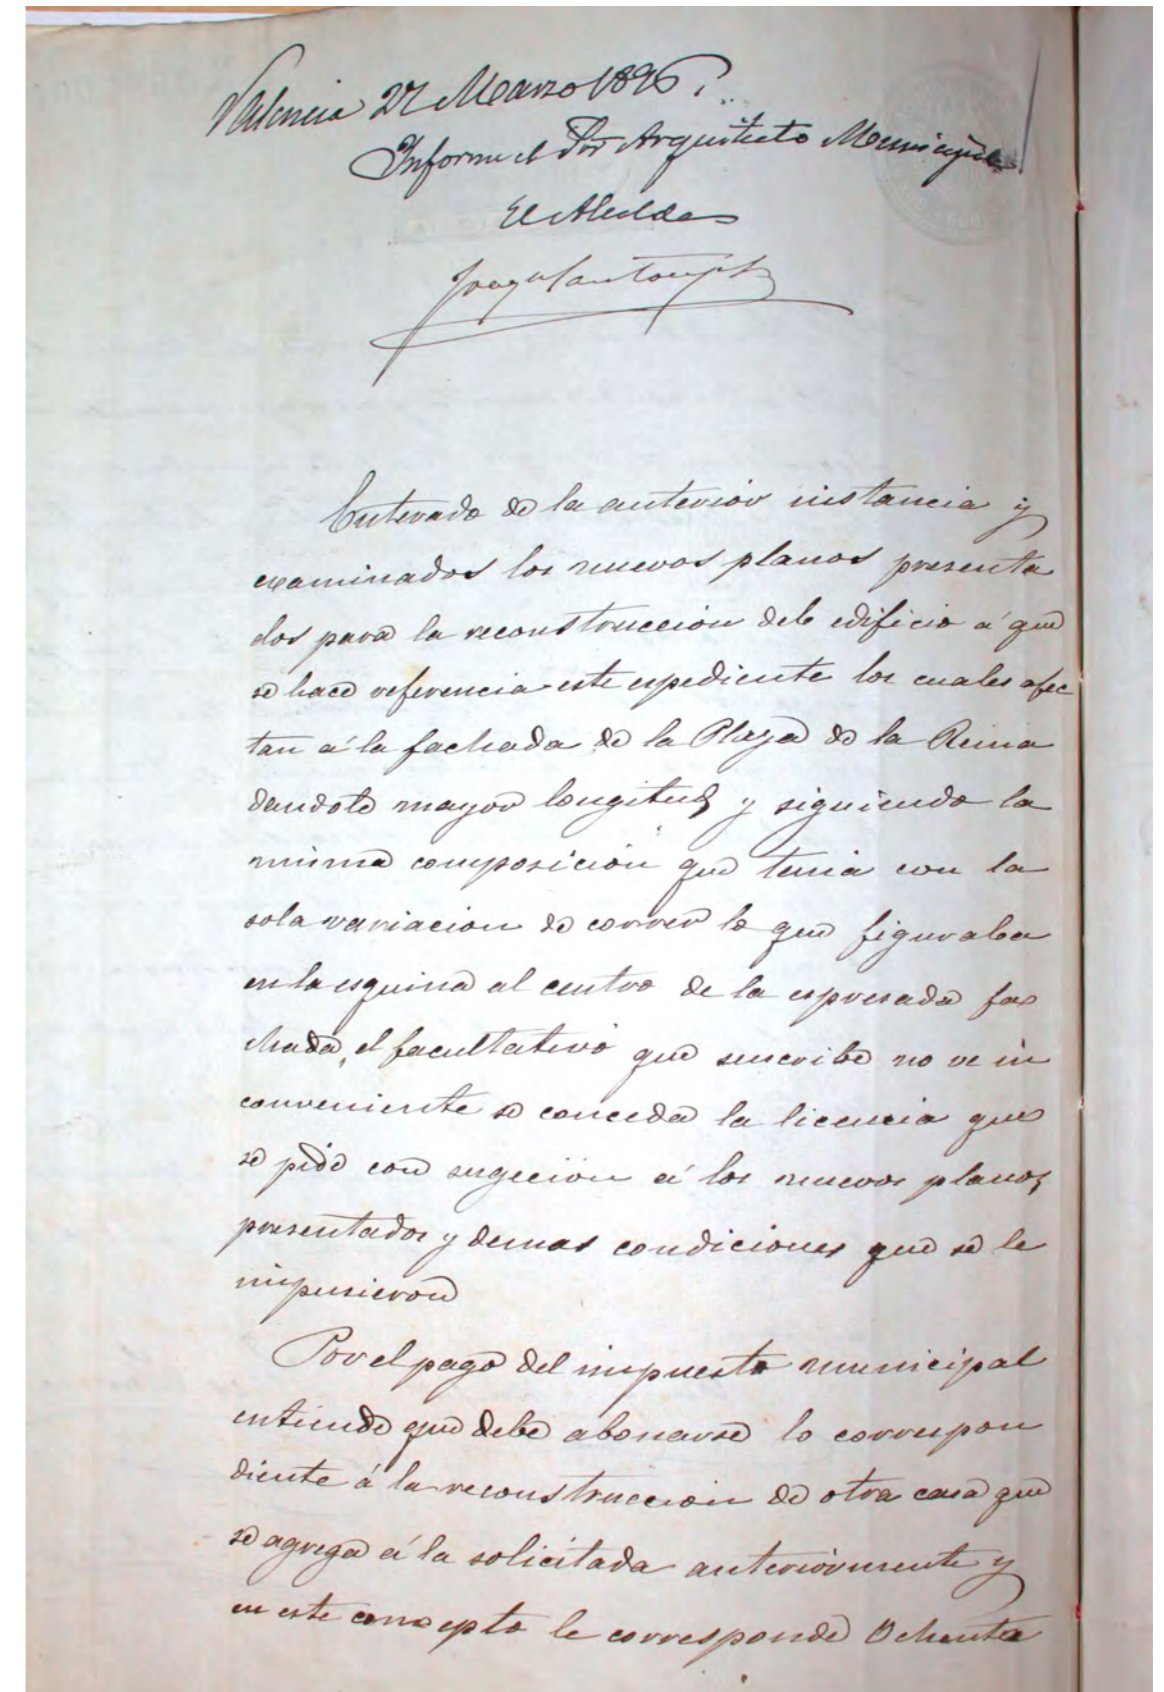 Valencia 27 Marzo 1896.
Informe el Sor Arquitecto Municipal
El Alcalde
Enterado de la anterior instancia y
examinados los nuevos planos presenta
dos para la reconstruccion del edificio á que
se hace referencia este espediente los cuales afec
tan á la fachada de la Plaza de la Reina
dandole mayor longitud y siguiendo la
misma composición que tenia con la
sola variacion de correr lo que figuraba
en la esquina al centro de la espresada fa
chada, el facultativo que suscribe no ve in
conveniente se conceda la licencia que
se pide con sugeción á los nuevos planos
presentados y demas condiciones que se le
impusieron
Por el pago del impuesto municipal
entiende que debe abonarse lo correspon
diente á la reconstruccion de otra casa que
se agrega á la solicitada anteriormente y
en este concepto le corresponde Ochenta